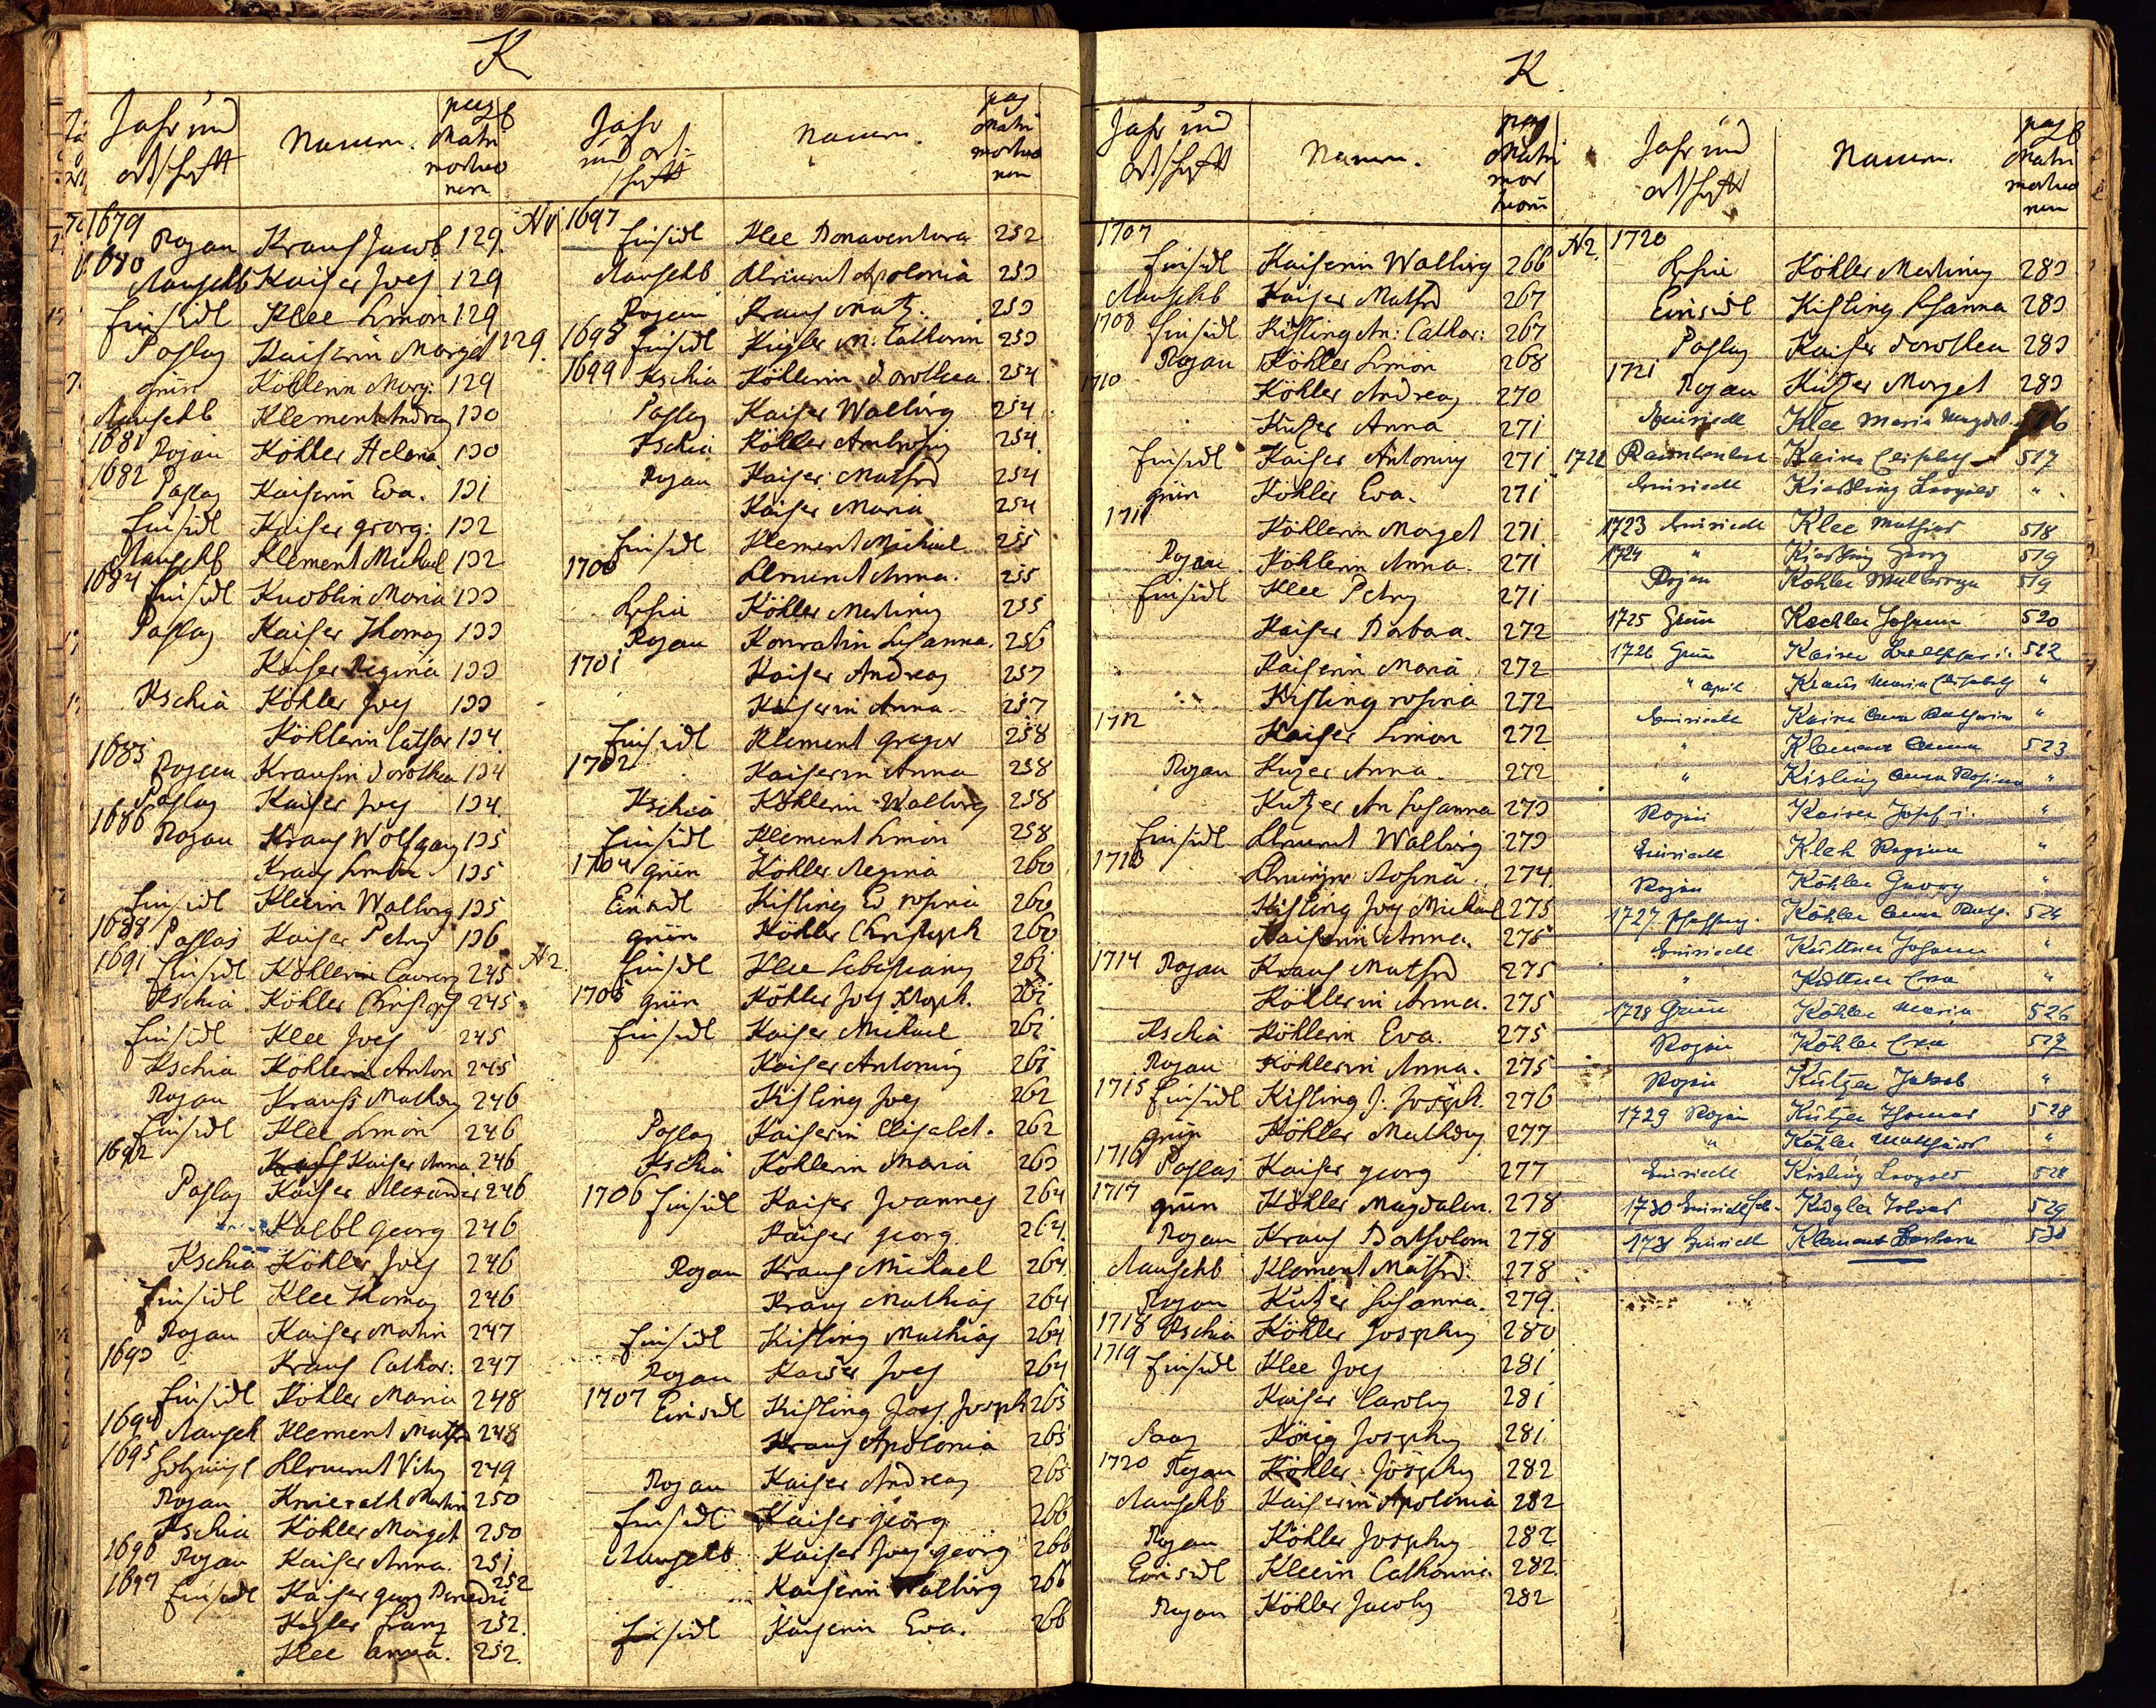 K
Jahr und Ortschaft Namen. pag Matri mortuo rum
1679 Rojau Kraus Jacob 129
1680 Mauschlb Kaiser Joes 129
Einsidl Klee Simon 129
Poslas Kaiserin Marget 129.
grün Köhlerin Marg: 129
Mauschlb Klement Andreas 130
1681 Rojau Köhler Helena 130
1682 Poslas Kaiserin Eva. 131
Einsidl Kaiser georg: 132
Mauschlb Klement Michael 132
1684 Einsidl Knoblin Maria 133
Poslas Kaiser Thomas 133
Kaiser Regina 133
Kschia Köhler Joes 133
Köhlerin Cathar 134.
1685 Rojau Krausin Dorothea 134
Poslas Kaiser Joes 134.
1686 Rojau Kraus Wolfgang 135
Kraus 135
Einsidl Kleein Walburg 135
1688 Poslas Kaiser Petrus 136
1691 Einsidl Köhlerin Laurenz 245
Kschia Köhler Christoph 245
Einsidl Klee Joes 245
Kschia Köhlerin Anton 245
Rojau Krauß Matheus 246
Einsidl Klee Simon 246
1692 Kaiser Anna 246
Poslas Kaiser Alexander 246
Kaebl georg 246
Kschia Köhler Joes 246
Einsidl Klee Thomas 246
Rojau Kaiser Matin 247
1693 Kraus Cathar: 247
Einsidl Köhler Maria 248
1694 Mausch Klement Maths 248
1695 Klement Vitus 249
Rojau Knierath Martin 250
Kschia Köhler Marget 250
1696 Rojau Kaiser Anna. 251
1697 Einsidl Kaiser georg Benedic 252
Kugler Franz 252.
Klee anna. 252.
Jahr und Ortschaft Namen. pag Matri mortuo rum
N1 1697 Einsidl Klee Bonaventura 252
Mauschlb Klement Apolonia 253
Rojau Kraus Mat. 253
1698 Einsidl Kugler M: Catharin 253
1699 Kschia Köhlerin Dorothea. 254
Poslas Kaiser Walburg 254
Kschia Köhler Ambrosius 254.
Rojau Kaiser Maths 254
Kaiser Maria 254
Einsidl Klement Michael 255
1700 Klement Anna. 255
Kschia Köhler Martinus 255
Rojau Konratin Susanna. 256
1701 Kaiser Andreas 257
Kaiserin Anna 257
Einsidl Klement Gregor 258
1702 Kaiserin Anna 258
Kschia Köhlerin Walburg 258
Einsidl Klement Simon 258
1704 grün Köhler Regina 260
Einsidl Kisling Ev rosina 260
grün Köhler Christoph 260
N2. Einsidl Klee Sebastianus 261
1705 grün Köhler Jos. 261
Einsidl Kaiser Michael 261
Kaiser Antonius 261
Kisling Joes 262
Poslas Kaiserin Elisabet. 262
Kschia Köhlerin Maria 263
1706 Einsidl Kaiser Joannes 264
Kaiser georg 264.
Rojau Kraus Michael 264
Kraus Mathias 264
Einsidl Kisling Mathias 264
Rojau Kaiser Joes 264
1707 Einsidl Kisling Joes Joseph 265
Kraus Apolonia 265
Rojau Kaiser Andreas 265
Einsidl Kaiser georg 266
Mauschlb Kaiser Joes georg 266
Kaiserin Walburg 266
Einsidl Kaiserin Eva. 266
K
Jahr und Ortschaft Namen. pag Matri mor tuorum
1707 Einsidl Kaiserin Walburg 266
Mauschlb Kaiser Maths 267
1708 Einsidl Kisling An: Cathar: 267
Rojau Köhler Simon 268
1710 Köhler Andreas 270
Kutzer Anna 271
Einsidl Kaiser Antonius 271
grün Köhler Eva. 271
1711 Köhlerin Marget 271.
Rojau Köhlerin Anna. 271
Einsidl Klee Petrus 271
Kaiser Barbara. 272
Kaiserin Maria 272
Kisling rosina 272
1712 Kaiser Simon 272
Rojau Kuzer Anna. 272
Kutzer An Susanna 273
Einsidl Klement Walburg 273
1713 Rosina. 274.
Kisling Joes Michael 275
Kaiserin Anna. 275
1714 Rojau Kraus Maths 275
Köhlerin Anna. 275
Kschia Köhlerin Eva. 275
Rojau Köhlerin Anna. 275
1715 Einsidl Kisling J. Joseph. 276
grün Köhler Matheus 277
1716 Poslas Kaiser georg 277
1717 grün Köhler Magdalen. 278
Rojau Kraus Bartholom 278
Mauschlb Klement Maths 278
Rojau Kutzer Susanna. 279.
1718 Kschia Köhler Josephus 280
1719 Einsidl Klee Joes 281
Kaiser Carolus 281
König Josephus 281
1720 Rojau Köhler Josephus 282
Mauschlb Kaiserin Apolonia 282
Rojau Köhler Josephus 282
Einsidl Kleein Catharina 282.
Rojau Köhler Jacobus 282
Jahr und Ortschaft Namen. pag Matri mortuo rum
N2. 1720 Kschia Köhler Martinus 283
Einsidl Kisling Susanna 283
Poslas Kaiser Dorothea 283
1721 Rojau Kutzer Marget 283
Einsiedl Klee Maria Magdal. 516
1722 Kaiser Elisabeth 517
Einsiedl Kießling Leopold "
1723 Einsiedl Klee Mathias 518
1724 " Kiesling Georg 519
Rojau Köhler 519
1725 Grün Koehler Johann 520
1726 Grün Kaiser 522
" april Kraus Maria Elisabeth "
Einsiedl Kaiser Anna Katharina "
" Klement Anna 523
" Kisling Anna Rosina "
Rojau Kaiser Josef "
Einsiedl Kleh Regina "
Rojau Köhler Georg "
1727 Köhler Anna 524
Einsiedl Küttner Johann "
" Küttner Eva "
1728 Grün Köhler Maria 526
Rojau Köhler Eva 527
Rojau Kutzer Jakob "
1729 Rojau Kutzer Thomas 528
" Köhler Matthäus "
Einsiedl Kisling Leopold 528
1730 Einsiedl Kugler Tobias 529
1731 Einsiedl Klement Barbara 530